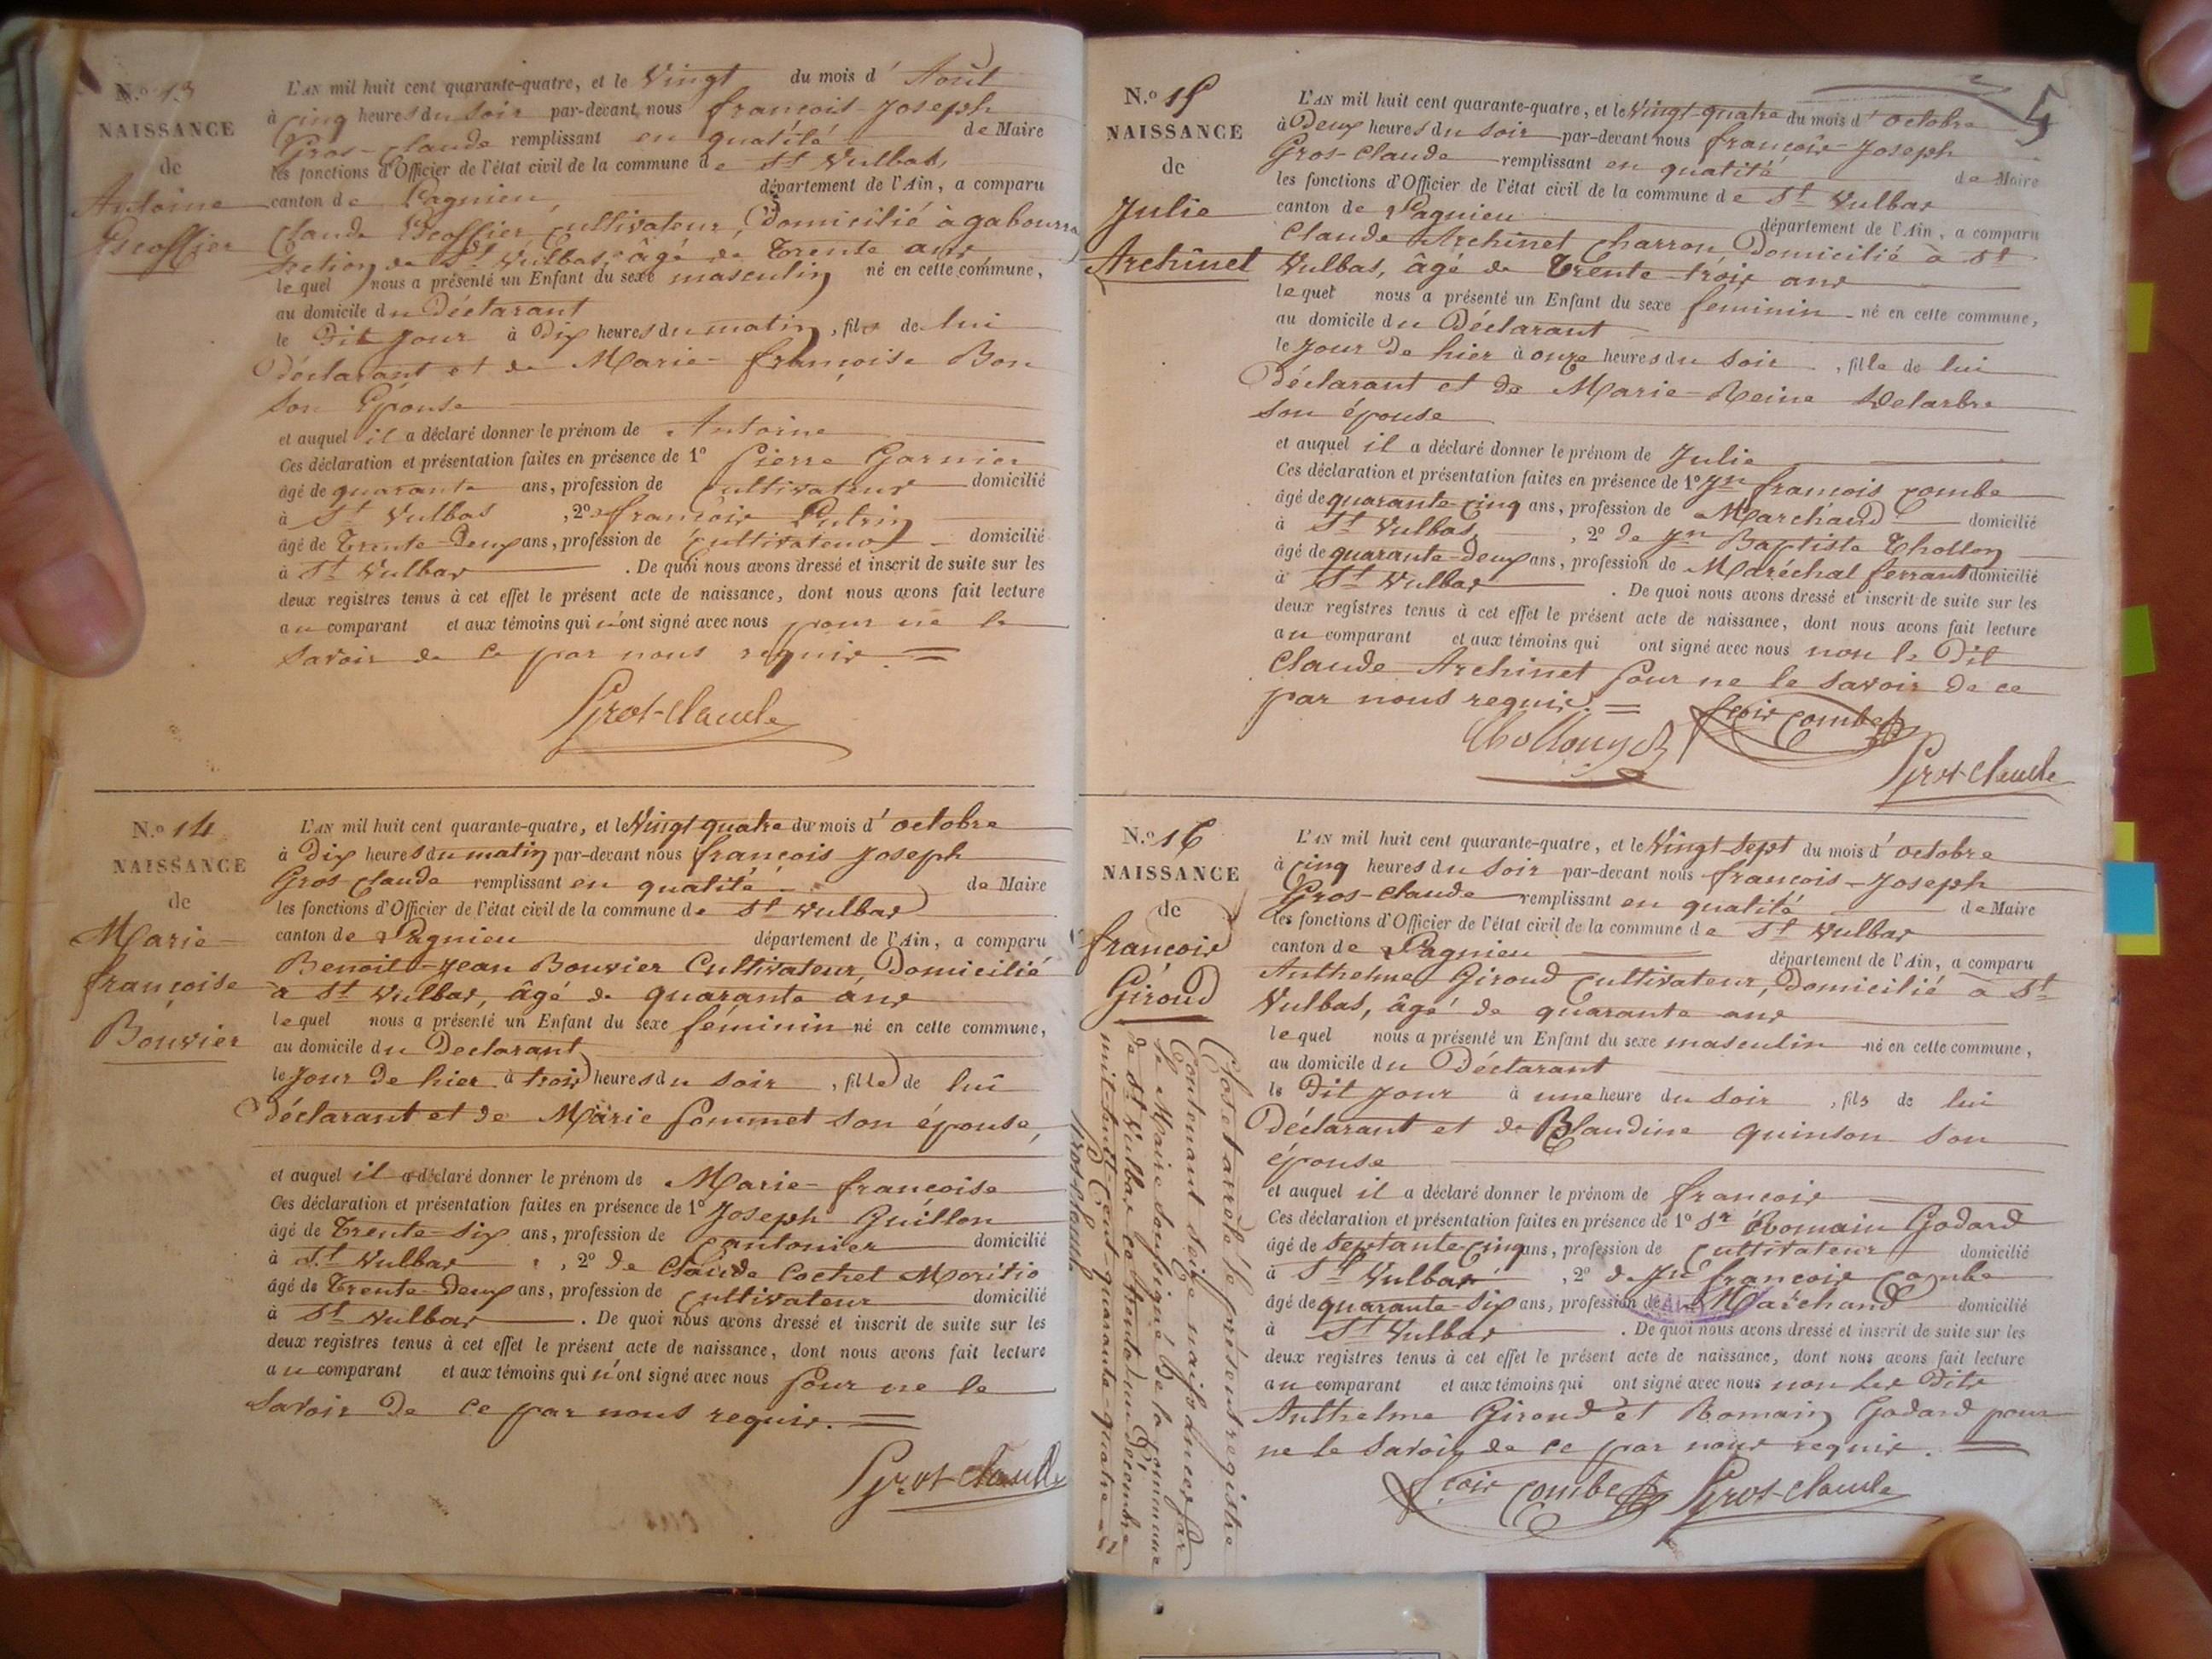 N.º 13
NAISSANCE
de
Antoine
Escoffier
L'AN mil huit cent quarante-quatre, et le Vingt du mois d' Août
à cinq heures du soir par-devant nous françois-Joseph
Gros-claude remplissant en qualité de Maire
les fonctions d'Officier de l'état civil de la commune de St Vulbas,
canton de Lagnieu, département de l'Ain, a comparu
Claude Escoffier cultivateur, Domicilié à gabourra
section de St Vulbas, âgé de trente ans
lequel nous a présenté un Enfant du sexe masculin né en cette commune,
au domicile du Déclarant
le Dit jour à Dix heures du matin, fils de lui
Déclarant et de Marie-françoise Bon
son Épouse
et auquel il a déclaré donner le prénom de Antoine
Ces déclaration et présentation faites en présence de 1º Pierre Garnier
âgé de quarante ans, profession de cultivateur domicilié
à St Vulbas, 2º françois
âgé de trente-Deux ans, profession de cultivateur domicilié
à St Vulbas. De quoi nous avons dressé et inscrit de suite sur les
deux registres tenus à cet effet le présent acte de naissance, dont nous avons fait lecture
au comparant et aux témoins qui n'ont signé avec nous pour ne le
savoir de ce par nous requis. =
Gros-claude
N.º 14
NAISSANCE
de
Marie-
françoise
Bouvier
L'AN mil huit cent quarante-quatre, et le Vingt quatre du mois d' octobre
à Dix heures du matin par-devant nous françois Joseph
Gros claude remplissant en qualité de Maire
les fonctions d'Officier de l'état civil de la commune de St Vulbas
canton de Lagnieu département de l'Ain, a comparu
Benoit-Jean Bouvier Cultivateur, Domicilié
à St Vulbas, âgé de quarante ans
lequel nous a présenté un Enfant du sexe féminin né en cette commune,
au domicile du Declarant
le Jour de hier à trois heures du soir, fille de lui
Déclarant et de Marie Pommet son épouse,
et auquel il a déclaré donner le prénom de Marie-françoise
Ces déclaration et présentation faites en présence de 1º Joseph Guillon
âgé de trente six ans, profession de cantonier domicilié
à St Vulbas, 2º de Claude Cochet
âgé de trente Deux ans, profession de cultivateur domicilié
à St Vulbas. De quoi nous avons dressé et inscrit de suite sur les
deux registres tenus à cet effet le présent acte de naissance, dont nous avons fait lecture
au comparant et aux témoins qui n'ont signé avec nous pour ne le
savoir de ce par nous requis. =
Gros-claude
N.º 15
NAISSANCE
de
Julie
Archinet
L'AN mil huit cent quarante-quatre, et le Vingt-quatre du mois d' octobre
à Deux heures du soir par-devant nous françois-Joseph
Gros-claude remplissant en qualité de Maire
les fonctions d'Officier de l'état civil de la commune de St Vulbas
canton de Lagnieu département de l'Ain, a comparu
Claude Archinet charron, Domicilié à St
Vulbas, âgé de trente-trois ans
lequel nous a présenté un Enfant du sexe feminin né en cette commune,
au domicile du Déclarant
le Jour de hier à onze heures du soir, fille de lui
Déclarant et de Marie-Reine Delarbre
son épouse
et auquel il a déclaré donner le prénom de Julie
Ces déclaration et présentation faites en présence de 1º Jn françois combe
âgé de quarante-cinq ans, profession de Marchand domicilié
à St Vulbas, 2º de Jn Baptiste Thollon
âgé de quarante-deux ans, profession de Maréchal ferrant domicilié
à St Vulbas. De quoi nous avons dressé et inscrit de suite sur les
deux registres tenus à cet effet le présent acte de naissance, dont nous avons fait lecture
au comparant et aux témoins qui ont signé avec nous non le Dit
Claude Archinet pour ne le savoir de ce
par nous requis. =
çois combe
Gros-claude
N.º 16
NAISSANCE
de
françois
Giroud
L'AN mil huit cent quarante-quatre, et le Vingt-sept du mois d' octobre
à cinq heures du soir par-devant nous françois-Joseph
Gros-claude remplissant en qualité de Maire
les fonctions d'Officier de l'état civil de la commune de St Vulbas
canton de Lagnieu département de l'Ain, a comparu
Anthelme Giroud cultivateur, Domicilié à St
Vulbas, âgé de quarante ans
lequel nous a présenté un Enfant du sexe masculin né en cette commune,
au domicile du Déclarant
le Dit jour à une heure du soir, fils de lui
Déclarant et de Blandine quinson son
épouse
et auquel il a déclaré donner le prénom de françois
Ces déclaration et présentation faites en présence de 1º Sr Romain Godard
âgé de septante-cinq ans, profession de cultivateur domicilié
à St Vulbas, 2º de Jn françois combe
âgé de quarante-six ans, profession de Marchand domicilié
à St Vulbas. De quoi nous avons dressé et inscrit de suite sur les
deux registres tenus à cet effet le présent acte de naissance, dont nous avons fait lecture
au comparant et aux témoins qui ont signé avec nous non les Dits
Anthelme Giroud et Romain Godard pour
ne le savoir de ce par nous requis. =
çois combe
Gros-claude
Clos et arrêté le présent registre
Contenant seize naissances par
le Maire soussigné de la commune
de St Vulbas ce trente un Décembre
mil huit-cent-quarante-quatre =
Gros-claude